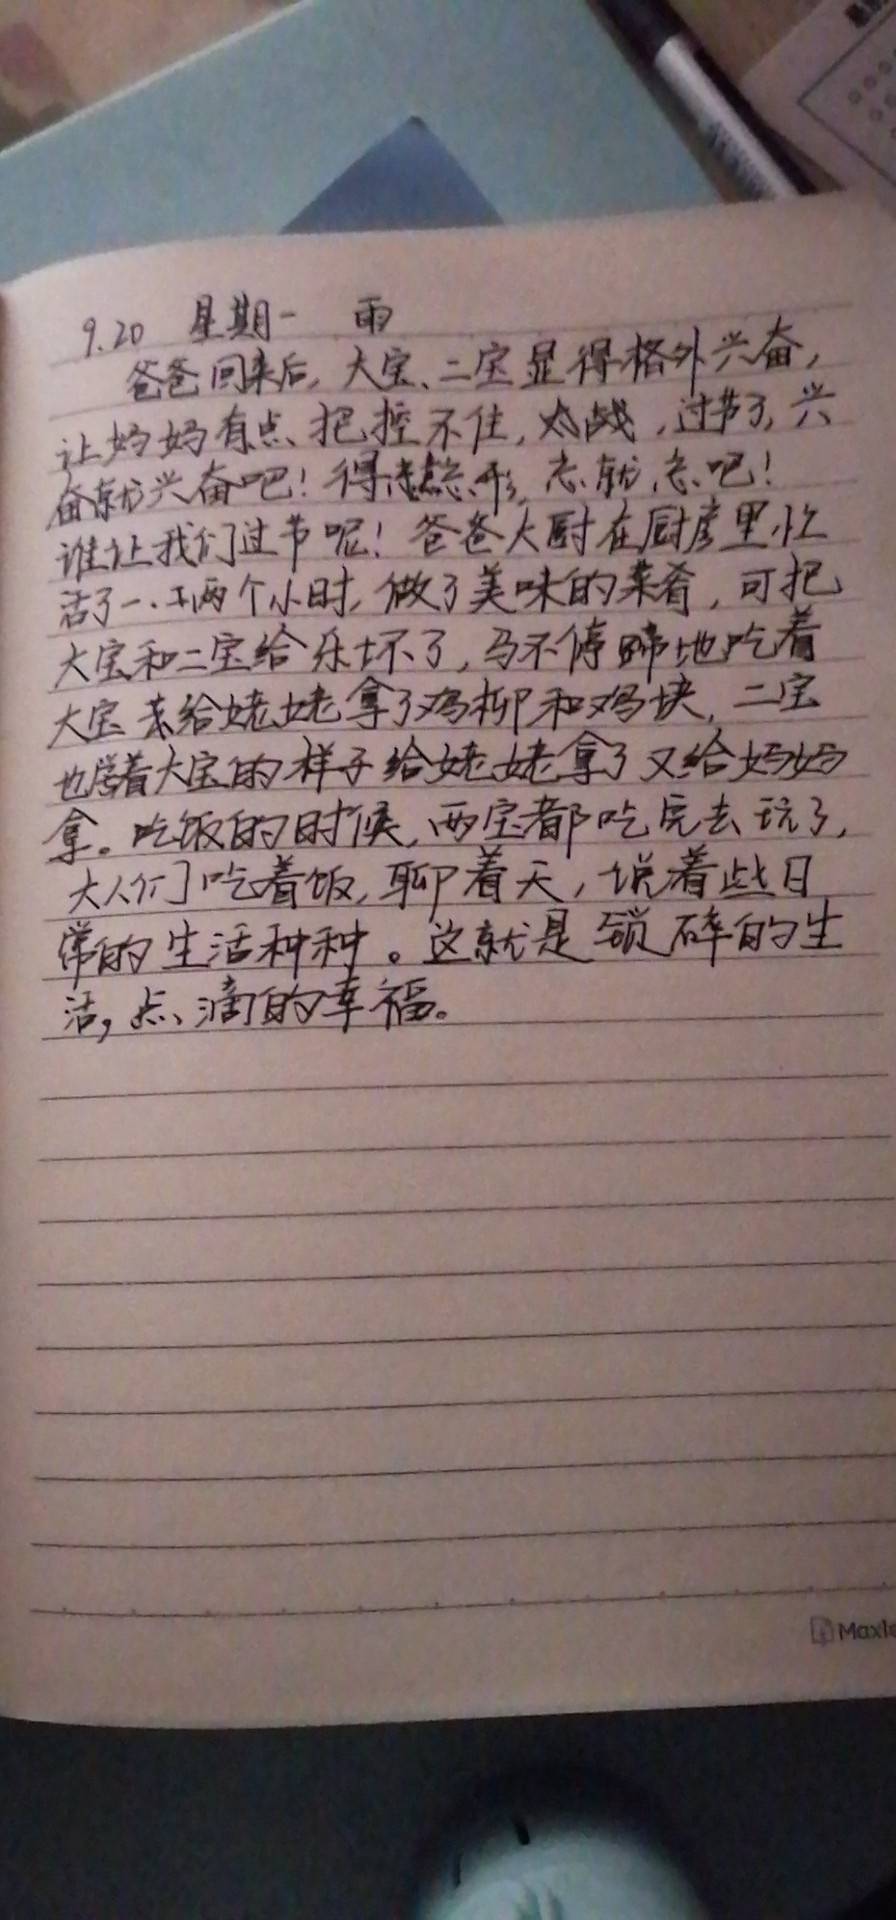 9.20 星期一 雨
爸爸回来后,大宝、二宝显得格外兴奋,
让妈妈有点把控不住,过节了,兴
奋就兴奋吧!得意忘形,忘就忘吧!
谁让我们过节呢!爸爸大厨在厨房里忙
活了一下两个小时,做了美味的菜肴,可把
大宝和二宝给乐坏了,马不停蹄地吃着
大宝来给姥姥拿了鸡柳和鸡块,二宝
也学着大宝的样子给姥姥拿了又给妈妈
拿。吃饭的时候,两宝都吃完去玩了,
大人们吃着饭,聊着天,说着些日
常的生活种种。这就是锁碎的生
活,点滴的幸福。